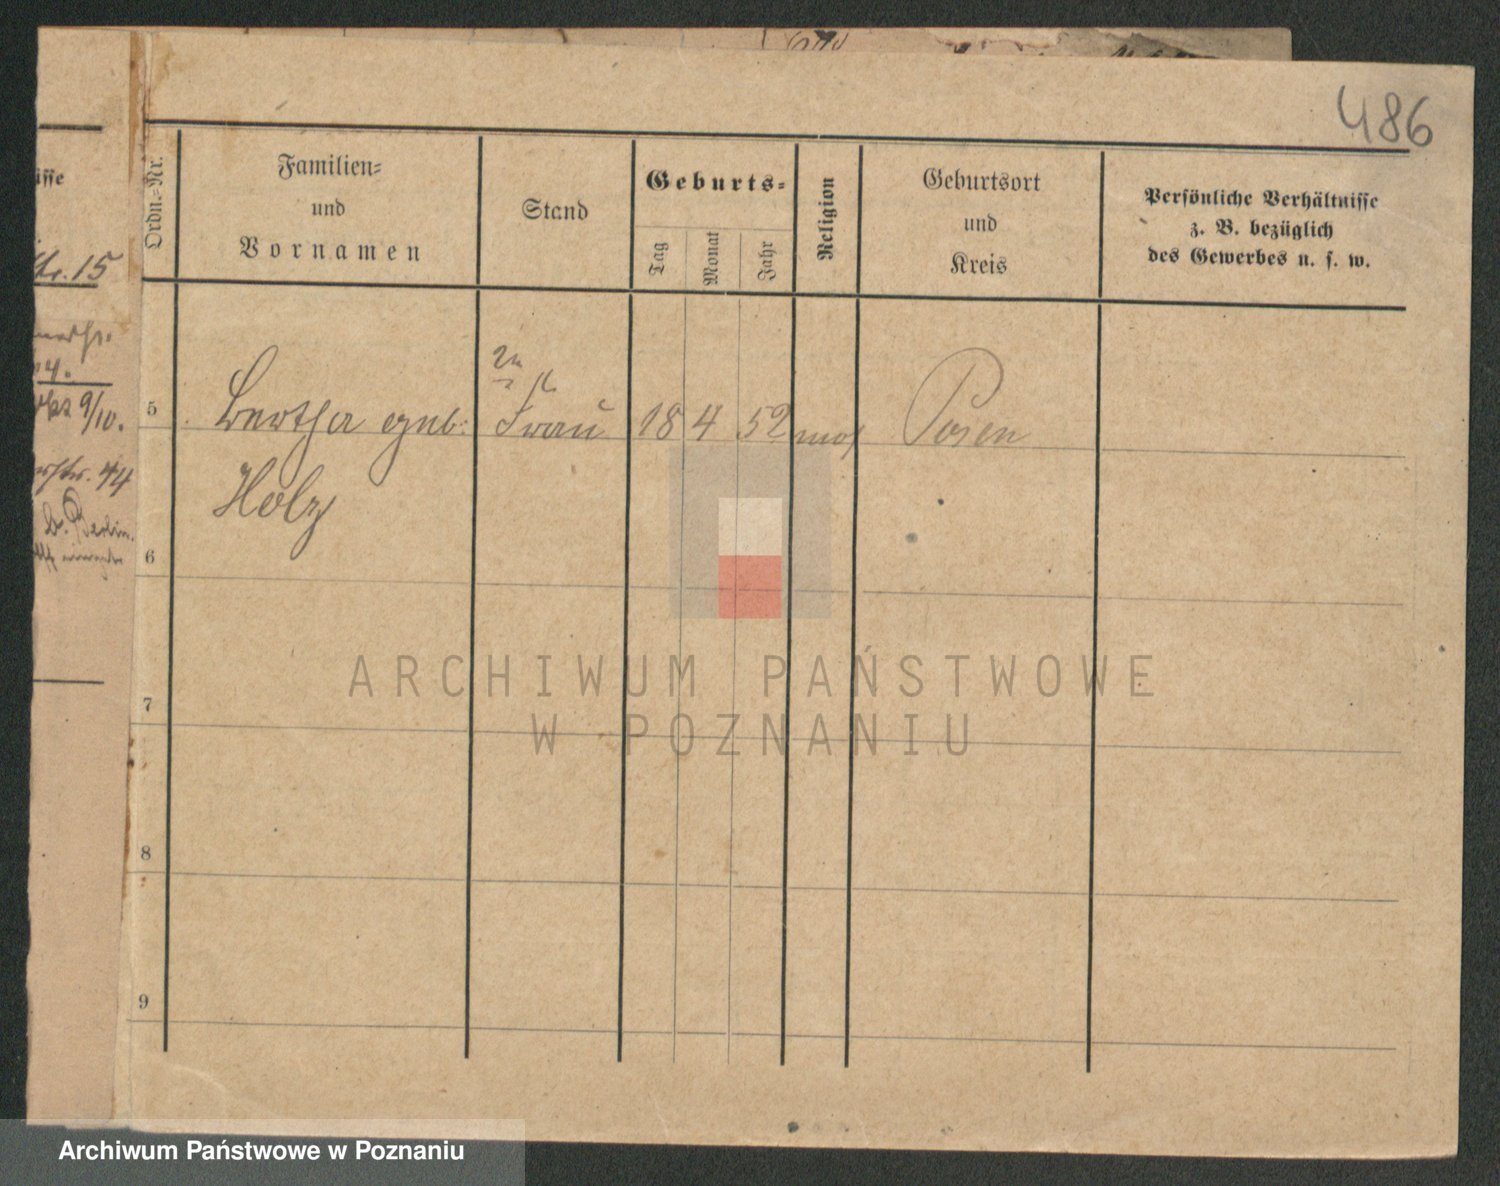 486
Ordn.-Nr.
Familien-
und
Vornamen
Stand
Geburts-
Tag
Monat
Jahr
Religion
Geburtsort
und
Kreis
Persönliche Verhältnisse
z. B. bezüglich
des Gewerbes u. s. w.
str. 15
9/10.
44
b. Berlin.
5 Bertha geb. Frau 18 4 52 mos Posen
Holz
6
7
8
9
ARCHIWUM PAŃSTWOWE
W POZNANIU
Archiwum Państwowe w Poznaniu